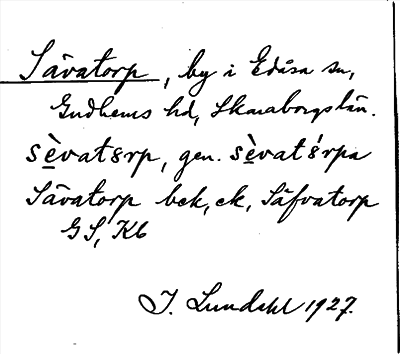 Sävatorp, by i Edåsa sn,
Gudhems hd, Skaraborgs län.
sè̲vatȣrp, gen. sè̲vatȣ́rpa
Sävatorp bek, ek, Säfvatorp
GS, Kb
I. Lundahl 1927.